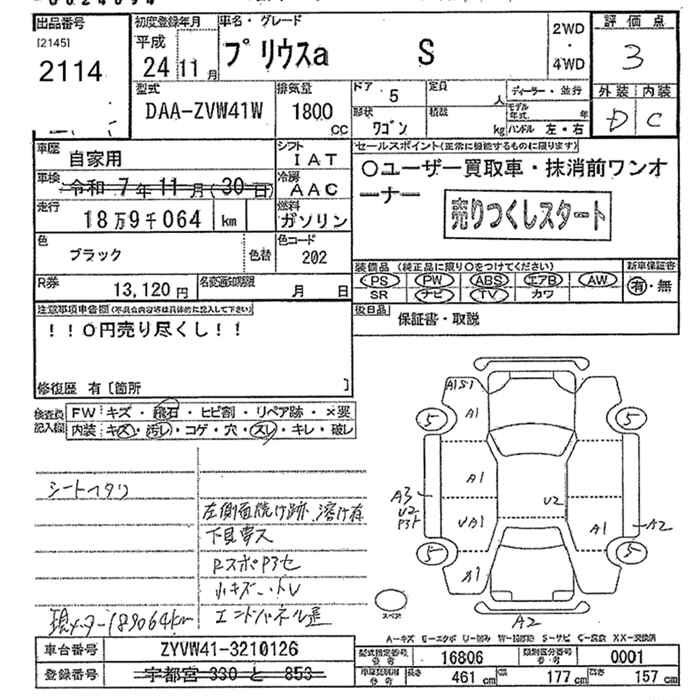 出品番号
[2145]
2114
初度登録年月
平成
24 11 月
車名・グレード
プリウスa S
2WD
・
4WD
評価点
3
外装 内装
D C
型式
DAA-ZVW41W
排気量
1800
CC
ドア 5
定員
人
形状
ワゴン
積載
kg
ディーラー・並行
モデル年式 年
ハンドル 左・右
車歴
自家用
シフト
IAT
車検
令和 7年 11月(30日)
冷房
AAC
走行
18万9千064 km
燃料
ガソリン
色
ブラック
色替
色コード
202
R券
13,120円
名変通知期限
月 日
セールスポイント(正常に機能するものに限ります)
〇ユーザー買取車・抹消前ワンオ
ーナー
売りつくしスタート
装備品 (純正品に限り〇をつけてください)
PS PW ABS エアB AW
SR ナビ TV カワ
新車保証書
有・無
後日品
保証書・取説
注意事項申告欄(不具合内容等は具体的に記入して下さい)
!!0円売り尽くし!!
修復歴 有〔箇所 〕
検査員
記入欄
FW キズ・飛石・ヒビ割・リペア跡・×要
内装 キズ・汚レ・コゲ・穴・スレ・キレ・破レ
シートヘタリ
左側面焼け跡、溶け有
下見要ス
RスポP3セ
小キズ・
エンドパネル歪
現メータ 189064km
A1S1
A1
5
5
A1
A3
U2
U2
A1
A2
5
5
A1
A2
スペア
A-キズ E-エクボ U-凹み W-補修跡 S-サビ C-腐食 XX-交換済
車台番号
ZYVW41-3210126
登録番号
宇都宮 330 と 853
型式指定番号
16806
類別区分番号
0001
長さ 461 cm
幅 177 cm
高さ 157 cm